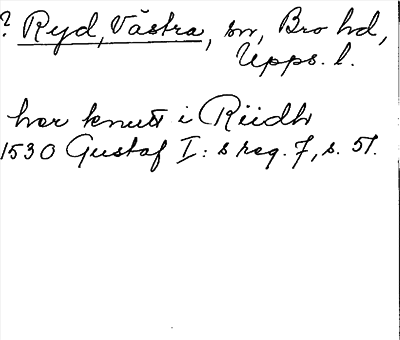 ? Ryd, Västra, sn, Bro hd,
Upps. l.
her knutt i Riidh
1530 Gustaf I:s reg. 7, s. 51.